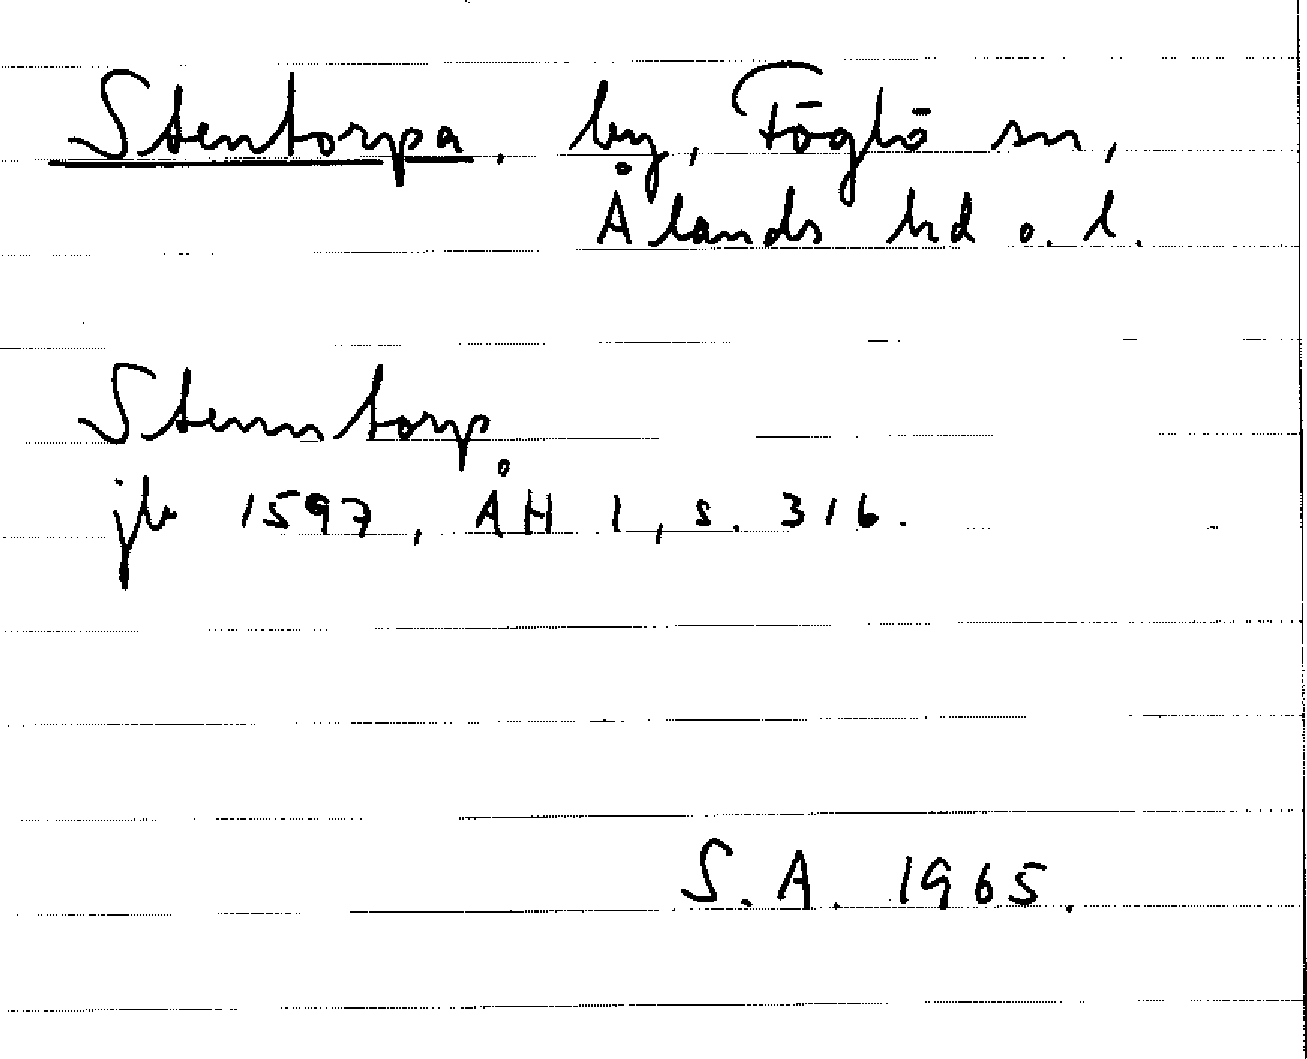 Stentorpa, by, Föglö sn,
Ålands hd o. l.
Stenns torp
jb 1597, ÅH 1, s. 316.
S. A. 1965.